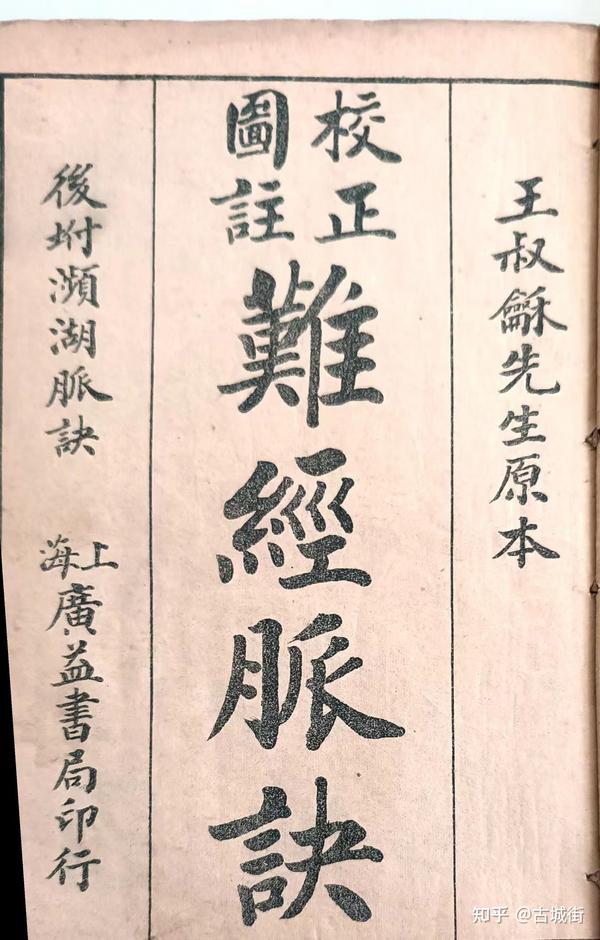 王叔龢先生原本
校正
圖註
難經脈訣
後坿瀕湖脈訣
上海
廣益書局印行
知乎 @古城街